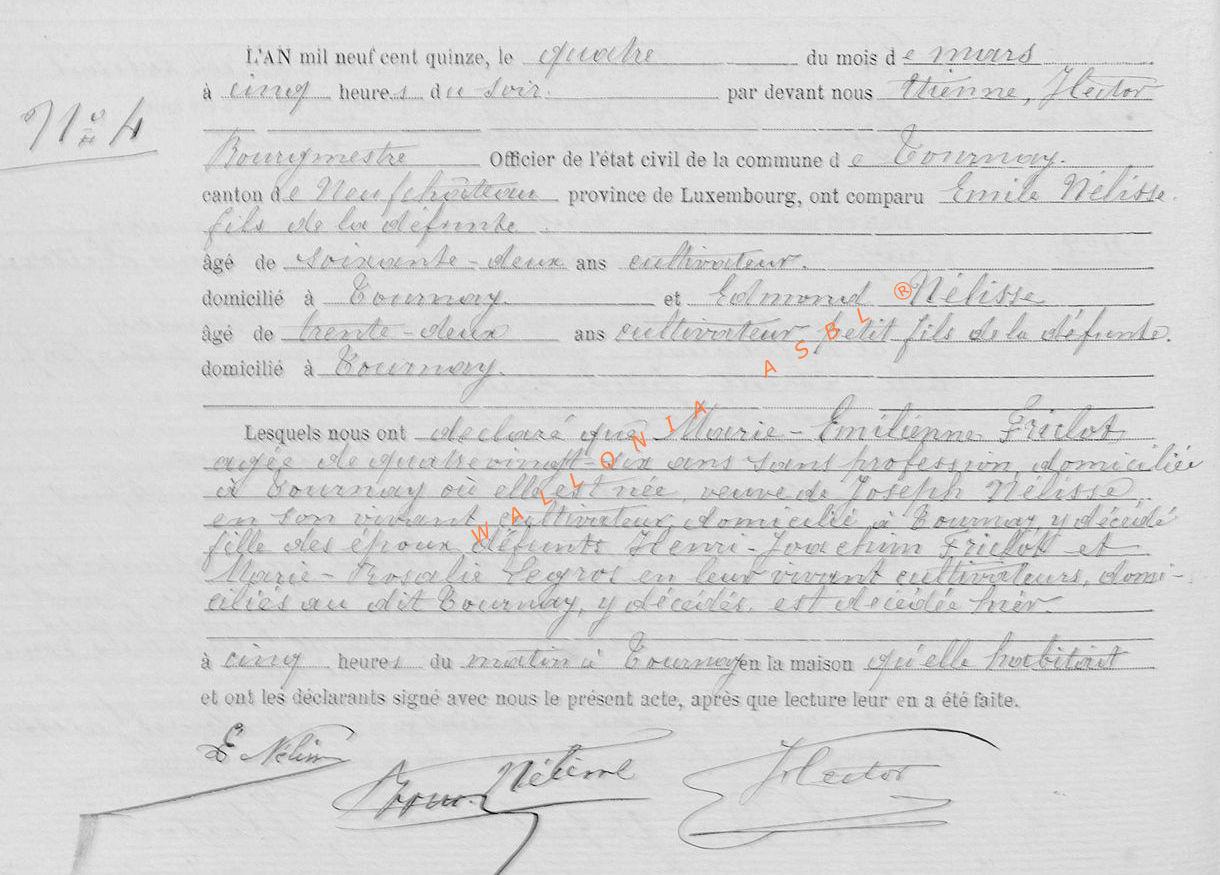 L'AN mil neuf cent quinze, le quatre du mois de mars
à cinq heures du soir. par devant nous Etienne, Hector
N° 4
Bourgmestre Officier de l'état civil de la commune de Tournay.
canton de Neufchâteau province de Luxembourg, ont comparu Emile Nélisse
fils de la défunte
âgé de soixante-deux ans cultivateur.
domicilié à Tournay. et Edmond Nélisse
âgé de trente-deux ans cultivateur petit fils de la défunte.
domicilié à Tournay.
WALLONIA ASBL ®
Lesquels nous ont déclaré que Marie-Emilienne Friclot
agée de quatrevingt-six ans sans profession, domiciliée
à Tournay où elle est née, veuve de Joseph Nélisse,
en son vivant cultivateur, domicilié à Tournay, y décédé
fille des époux défunts Henri-Joachim Friclot et
Marie-Rosalie Legros en leur vivant cultivateurs, domi-
ciliés au dit Tournay, y décédés. est décédée hier
à cinq heures du matin à Tournay en la maison qu'elle habitait
et ont les déclarants signé avec nous le présent acte, après que lecture leur en a été faite.
E Nélisse
Nélisse
Hector